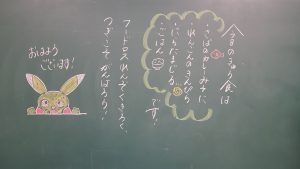 今日のきゅう食は
・さばのかしみそに
・れんこんのきんぴら
・にらたまじる
・ごはん
です!
フードロスれんぞくきろく、
つぎこそがんばろう!
おはよう
ございます!